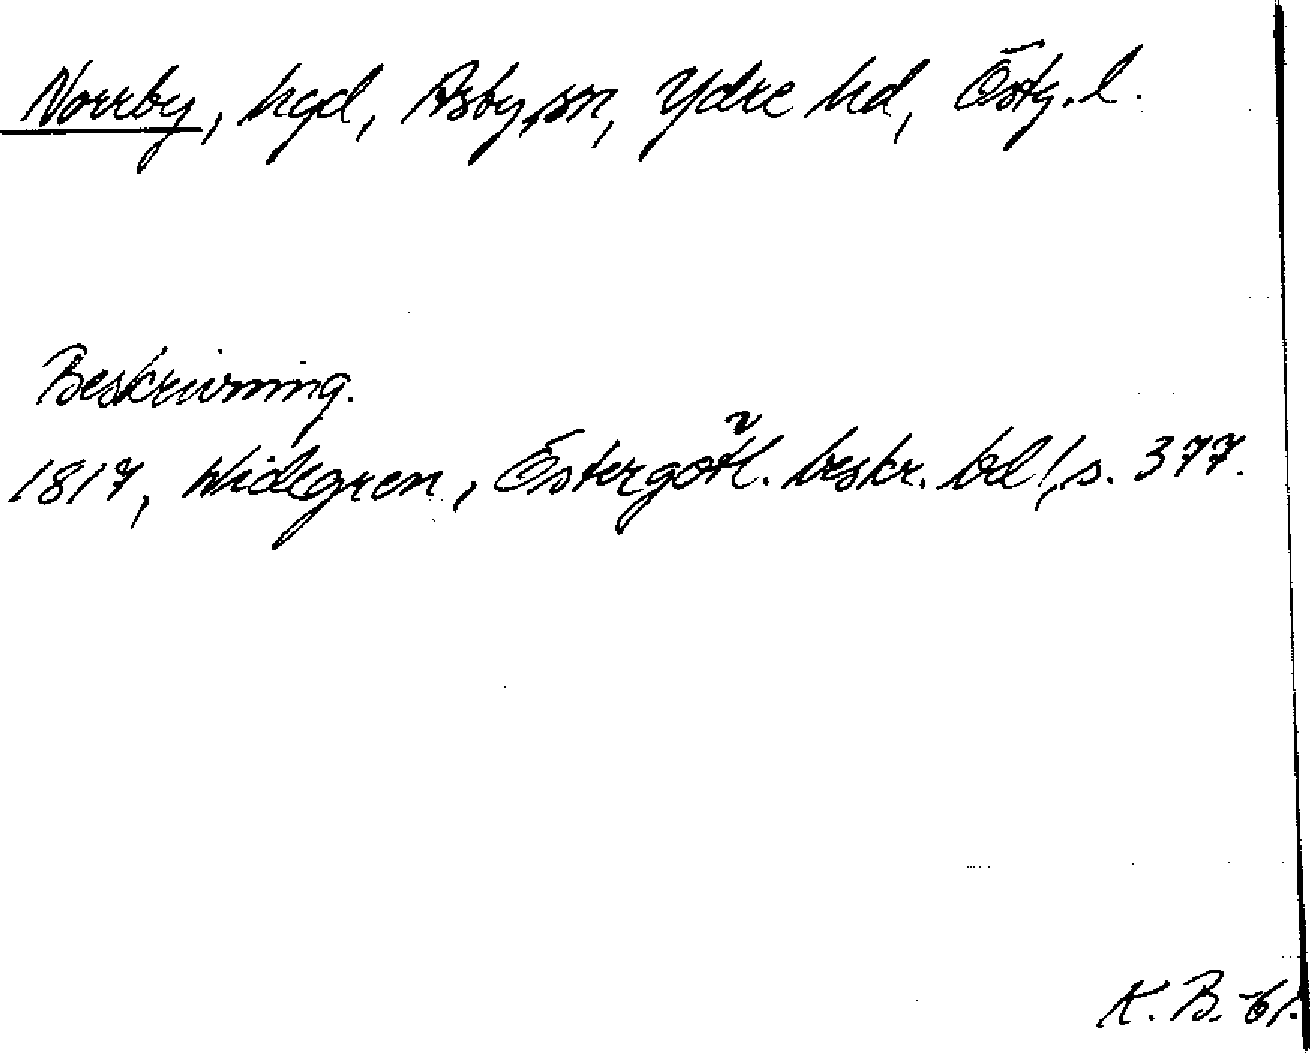 Norrby, hgd, Asby sn, Ydre hd, Östg. l.
Beskrivning.
1817, Widegren, Östergötl. beskr. bd 1, s. 377.
K. B. -61.